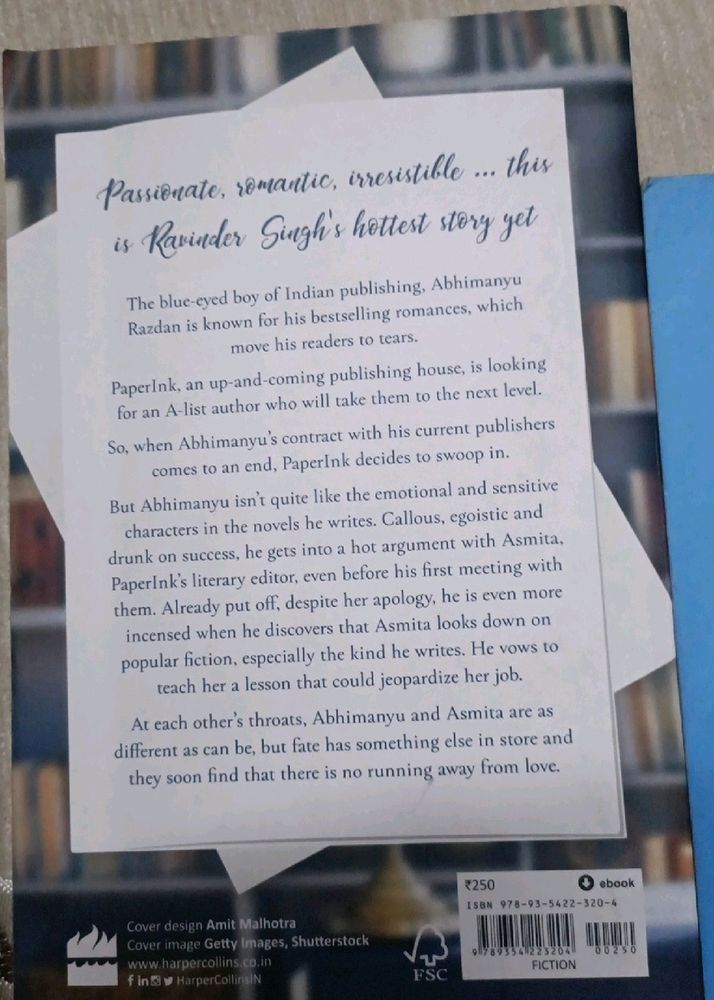 Passionate, romantic, irresistible ... this
is Ravinder Singh's hottest story yet
The blue-eyed boy of Indian publishing, Abhimanyu
Razdan is known for his bestselling romances, which
move his readers to tears.
PaperInk, an up-and-coming publishing house, is looking
for an A-list author who will take them to the next level.
So, when Abhimanyu's contract with his current publishers
comes to an end, PaperInk decides to swoop in.
But Abhimanyu isn't quite like the emotional and sensitive
characters in the novels he writes. Callous, egoistic and
drunk on success, he gets into a hot argument with Asmita,
PaperInk's literary editor, even before his first meeting with
them. Already put off, despite her apology, he is even more
incensed when he discovers that Asmita looks down on
popular fiction, especially the kind he writes. He vows to
teach her a lesson that could jeopardize her job.
At each other's throats, Abhimanyu and Asmita are as
different as can be, but fate has something else in store and
they soon find that there is no running away from love.
Cover design Amit Malhotra
Cover image Getty Images, Shutterstock
www.harpercollins.co.in
HarperCollinsIN
FSC
₹250 ebook
ISBN 978-93-5422-320-4
9 789354 223204 00250
FICTION